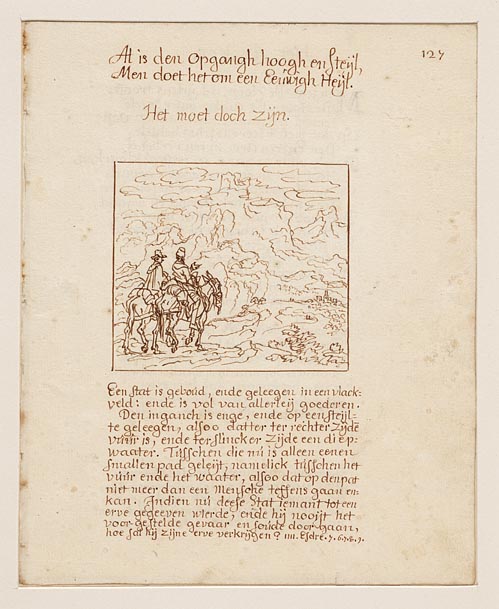 127
Al is den Opgangh hoogh en steijl,
Men doet het om een Eeuwigh Heijl.
Het moet doch zijn.
Een stat is geboud, ende geleegen in een vlack-
veld: ende is vol van allerleij goederen.
Den inganch is enge, ende op een steijl-
te geleegen, alsoo datter ter rechter zijde
vuur is, ende ter slincker zijde een diep-
waater. Tusschen die nu is alleen eenen
smallen pad geleijt, namelick tusschen het
vuur ende het waater, alsoo dat op den pat
niet meer dan een Mensche teffens gaan en-
kan. Indien nu deese stat iemant tot een
erve gegeeven wierde, ende hij nooijt het
voor-gestelde gevaar en soude door-gaan,
hoe sal hij zijne erve verkrijgen? Esdre. 7. 6. 7. 8. 9.